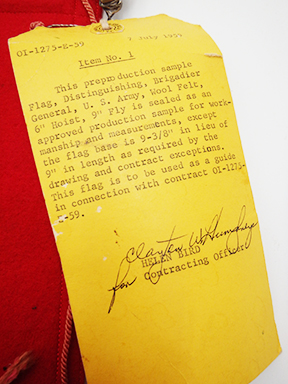 OI-1273-E-59
7 July 1959
Item No. 1
This preproduction sample
Flag, Distinguishing, Brigadier
General, U. S. Army, Wool Felt,
6" Hoist, 9" Fly is sealed as an
approved production sample for work-
manship and measurements, except
the flag base is 9-3/8" in lieu of
9" in length as required by the
drawing and contract exceptions.
This flag is to be used as a guide
in connection with contract OI-1273-
E-59.
Clayton W Humphrey
for HELEN BIRD
Contracting Officer